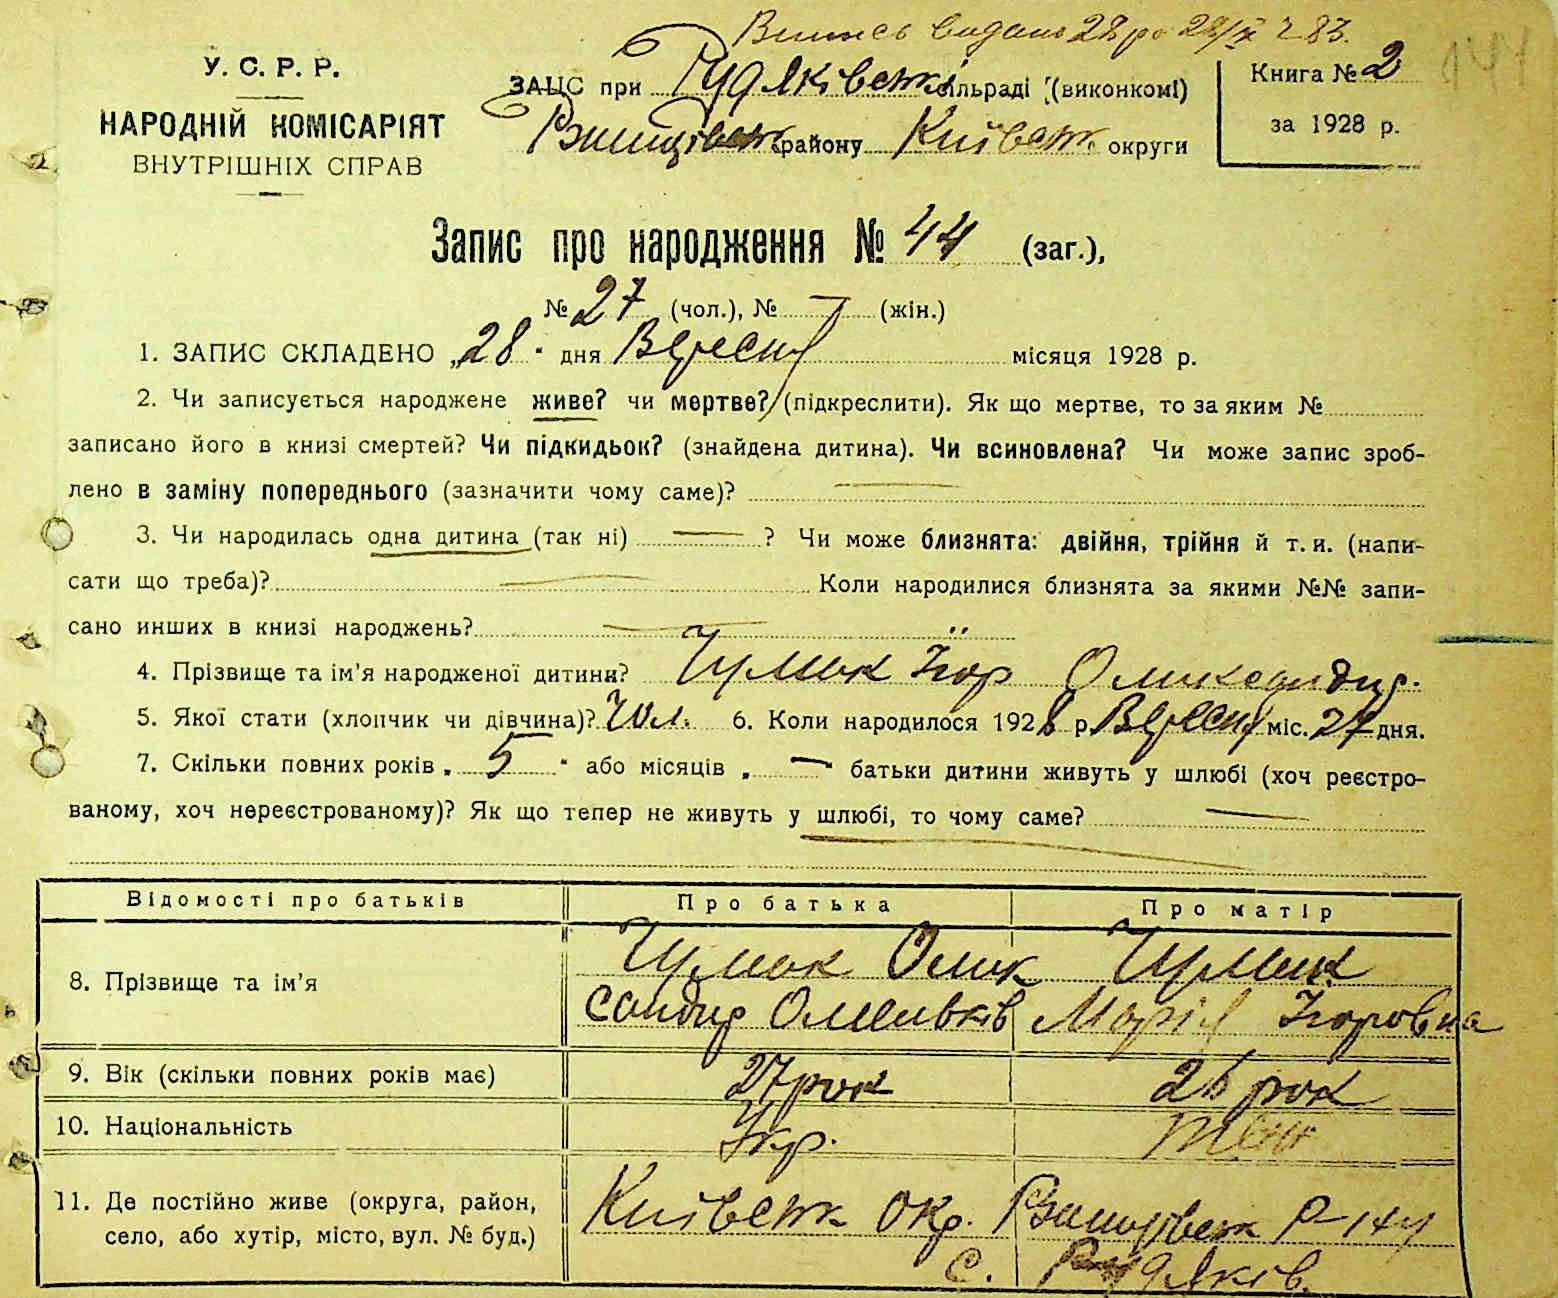 Випись видано 28 ро 28/ІХ 283.
У. С. Р. Р.
НАРОДНІЙ КОМІСАРІЯТ
ВНУТРІШНІХ СПРАВ
ЗАЦС при Рудяківській сільраді (виконкомі)
Ржищівськ району Київськ. округи
Книга № 2
за 1928 р.
Запис про народження № 44 (заг.),
№ 27 (чол.), № — (жін.)
1. ЗАПИС СКЛАДЕНО „28" дня Вересня місяця 1928 р.
2. Чи записується народжене живе? чи мертве? (підкреслити). Як що мертве, то за яким №
записано його в книзі смертей? Чи підкидьок? (знайдена дитина). Чи всиновлена? Чи може запис зроб-
лено в заміну попереднього (зазначити чому саме)? —
3. Чи народилась одна дитина (так ні) — ? Чи може близнята: двійня, трійня й т. и. (напи-
сати що треба)? — Коли народилися близнята за якими №№ запи-
сано инших в книзі народжень? —
4. Прізвище та ім'я народженої дитини? Чумак Ігор Олександр.
5. Якої стати (хлопчик чи дівчина)? Чол. 6. Коли народилося 1928 р. Вересня міс. 27 дня.
7. Скільки повних років „5" або місяців „—" батьки дитини живуть у шлюбі (хоч реєстро-
ваному, хоч нереєстрованому)? Як що тепер не живуть у шлюбі, то чому саме? —
Відомості про батьків Про батька Про матір
8. Прізвище та ім'я Чумак Олек Чумак
сандр Омельків Марія Ігоровна
9. Вік (скільки повних років має) 27 рок 25 рок
10. Національність Укр. теж
11. Де постійно живе (округа, район, Київськ окр. Ржищівськ Р-ну
село, або хутір, місто, вул. № буд.) с. Рудяків.